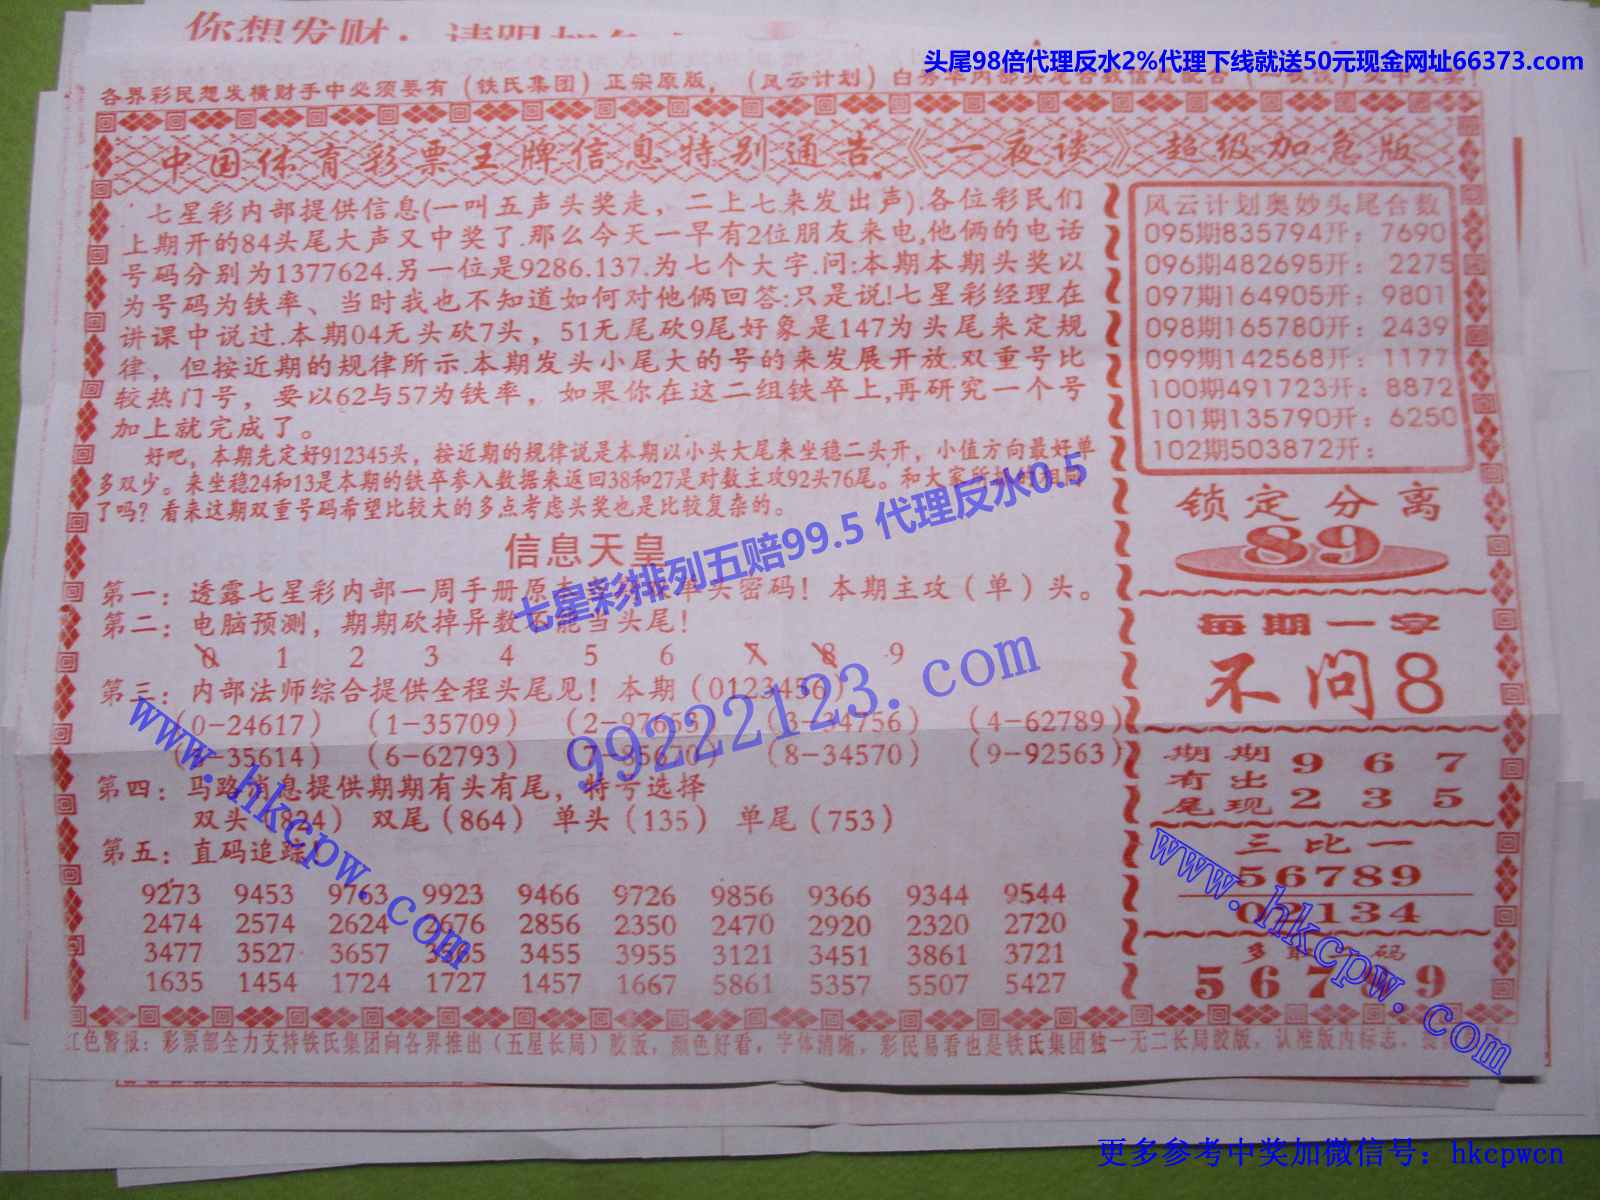 你想发财：请跟
头尾98倍代理反水2%代理下线就送50元现金网址66373.com
各界彩民想发横财手中必须要有（铁氏集团）正宗原版，（风云计划）
中国体育彩票王牌信息特别通告《一夜谈》超级加急版
七星彩内部提供信息(一叫五声头奖走，二上七来发出声).各位彩民们
上期开的84头尾大声又中奖了.那么今天一早有2位朋友来电,他俩的电话
号码分别为1377624.另一位是9286.137.为七个大字.问:本期本期头奖以
为号码为铁率、当时我也不知道如何对他俩回答:只是说!七星彩经理在
讲课中说过.本期04无头砍7头，51无尾砍9尾好象是147为头尾来定规
律，但按近期的规律所示.本期发头小尾大的号的来发展开放.双重号比
较热门号，要以62与57为铁率，如果你在这二组铁卒上,再研究一个号
加上就完成了。
好吧，本期先定好912345头，按近期的规律说是本期以小头大尾来坐稳二头开，小值方向最好单
多双少。来坐稳24和13是本期的铁卒参入数据来返回38和27是对数主攻92头76尾。和大家所
了吗？看来这期双重号码希望比较大的多点考虑头奖也是比较复杂的。
信息天皇
第一：透露七星彩内部一周手册原 头密码！本期主攻（单）头。
第二：电脑预测，期期砍掉异数不能当头尾！
0 1 2 3 4 5 6 7 8 9
第三：内部法师综合提供全程头尾见！本期（0123456）
（0-24617）（1-35709）（3-34756）（4-62789）
-35614）（6-62793）（8-34570）（9-92563）
第四：马路消息提供期期有头有尾，特号选择
双头（824）双尾（864）单头（135）单尾（753）
第五：直码追踪
9273 9453 9763 9923 9466 9726 9856 9366 9344 9544
2474 2574 2624 2676 2856 2350 2470 2920 2320 2720
3477 3527 3657 3455 3955 3121 3451 3861 3721
1635 1454 1724 1727 1457 1667 5861 5357 5507 5427
风云计划奥妙头尾合数
095期835794开：7690
096期482695开：2275
097期164905开：9801
098期165780开：2439
099期142568开：1177
100期491723开：8872
101期135790开：6250
102期503872开：
锁定分离
89
每期一字
不问8
期期 9 6 7
有出
尾现 2 3 5
三比一
56789
02134
多 码
5 6 7 8 9
红色警报：彩票部全力支持铁氏集团向各界推出（五星长局）胶版，颜色好看，字体清晰，彩民易看也是铁氏集团独一无二长局胶版，认准版内标志，
七星彩排列五赔99.5 代理反水0.5
99222123.com
www.hkcpw.com
www.hkcpw.com
更多参考中奖加微信号：hkcpwcn